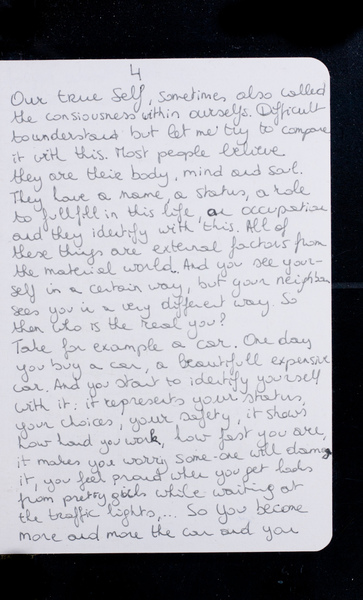 4
Our true Self, sometimes also called
the consiousness within ourselfs. Difficult
to understand but let me try to compare
it with this. Most people believe
they are their body, mind and soul.
They have a name, a status, a role
to fullfill in this life, an occupation
and they identify with this. All of
these things are external factors from
the material world. And you see your-
self in a certain way, but your neighbour
sees you in a very different way. So
then who is the real you?
Take for example a car. One day
you buy a car, a beautifull expensive
car. And you start to identify yourself
with it: it represents your status,
your choices, your safety, it shows
how hard you work, how fast you are,
it makes you worry some-one will damage
it, you feel proud when you get looks
from pretty girls while waiting at
the traffic lights,... So you become
more and more the car and you